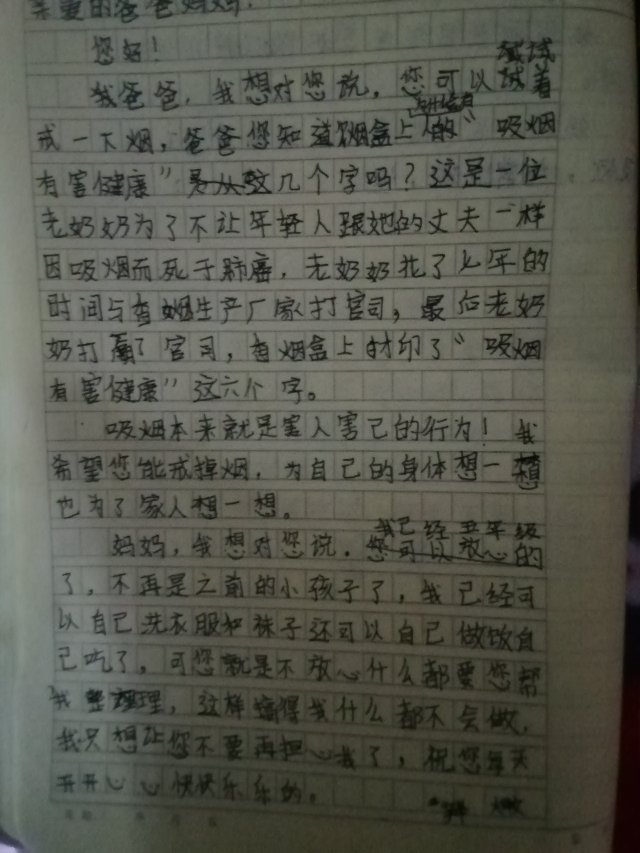 亲爱的爸爸妈妈:
您好!
尝试
我爸爸,我想对您说,您可以试着
戒一下烟,爸爸您知道烟盒上的"吸烟
有害健康"是从致几个字吗?这是一位
老奶奶为了不让年轻人跟她的丈夫一样
因吸烟而死于肺癌,老奶奶花了七年的
时间与香烟生产厂家打官司,最后老奶
奶打赢了官司,香烟盒上才印了"吸烟
有害健康"这六个字。
吸烟本来就是害人害己的行为!我
希望您能戒掉烟,为自己的身体想一想
也为了家人想一想。
我已经五年级
妈妈,我想对您说,您可以放心的
了,不再是之前的小孩子了,我已经可
以自己洗衣服和袜子还可以自己做饭自
己吃了,可您就是不放心什么都要您帮
我整理,这样搞得我什么都不会做,
我只想让您不要再担心我了,祝您每天
开开心心快快乐乐的。